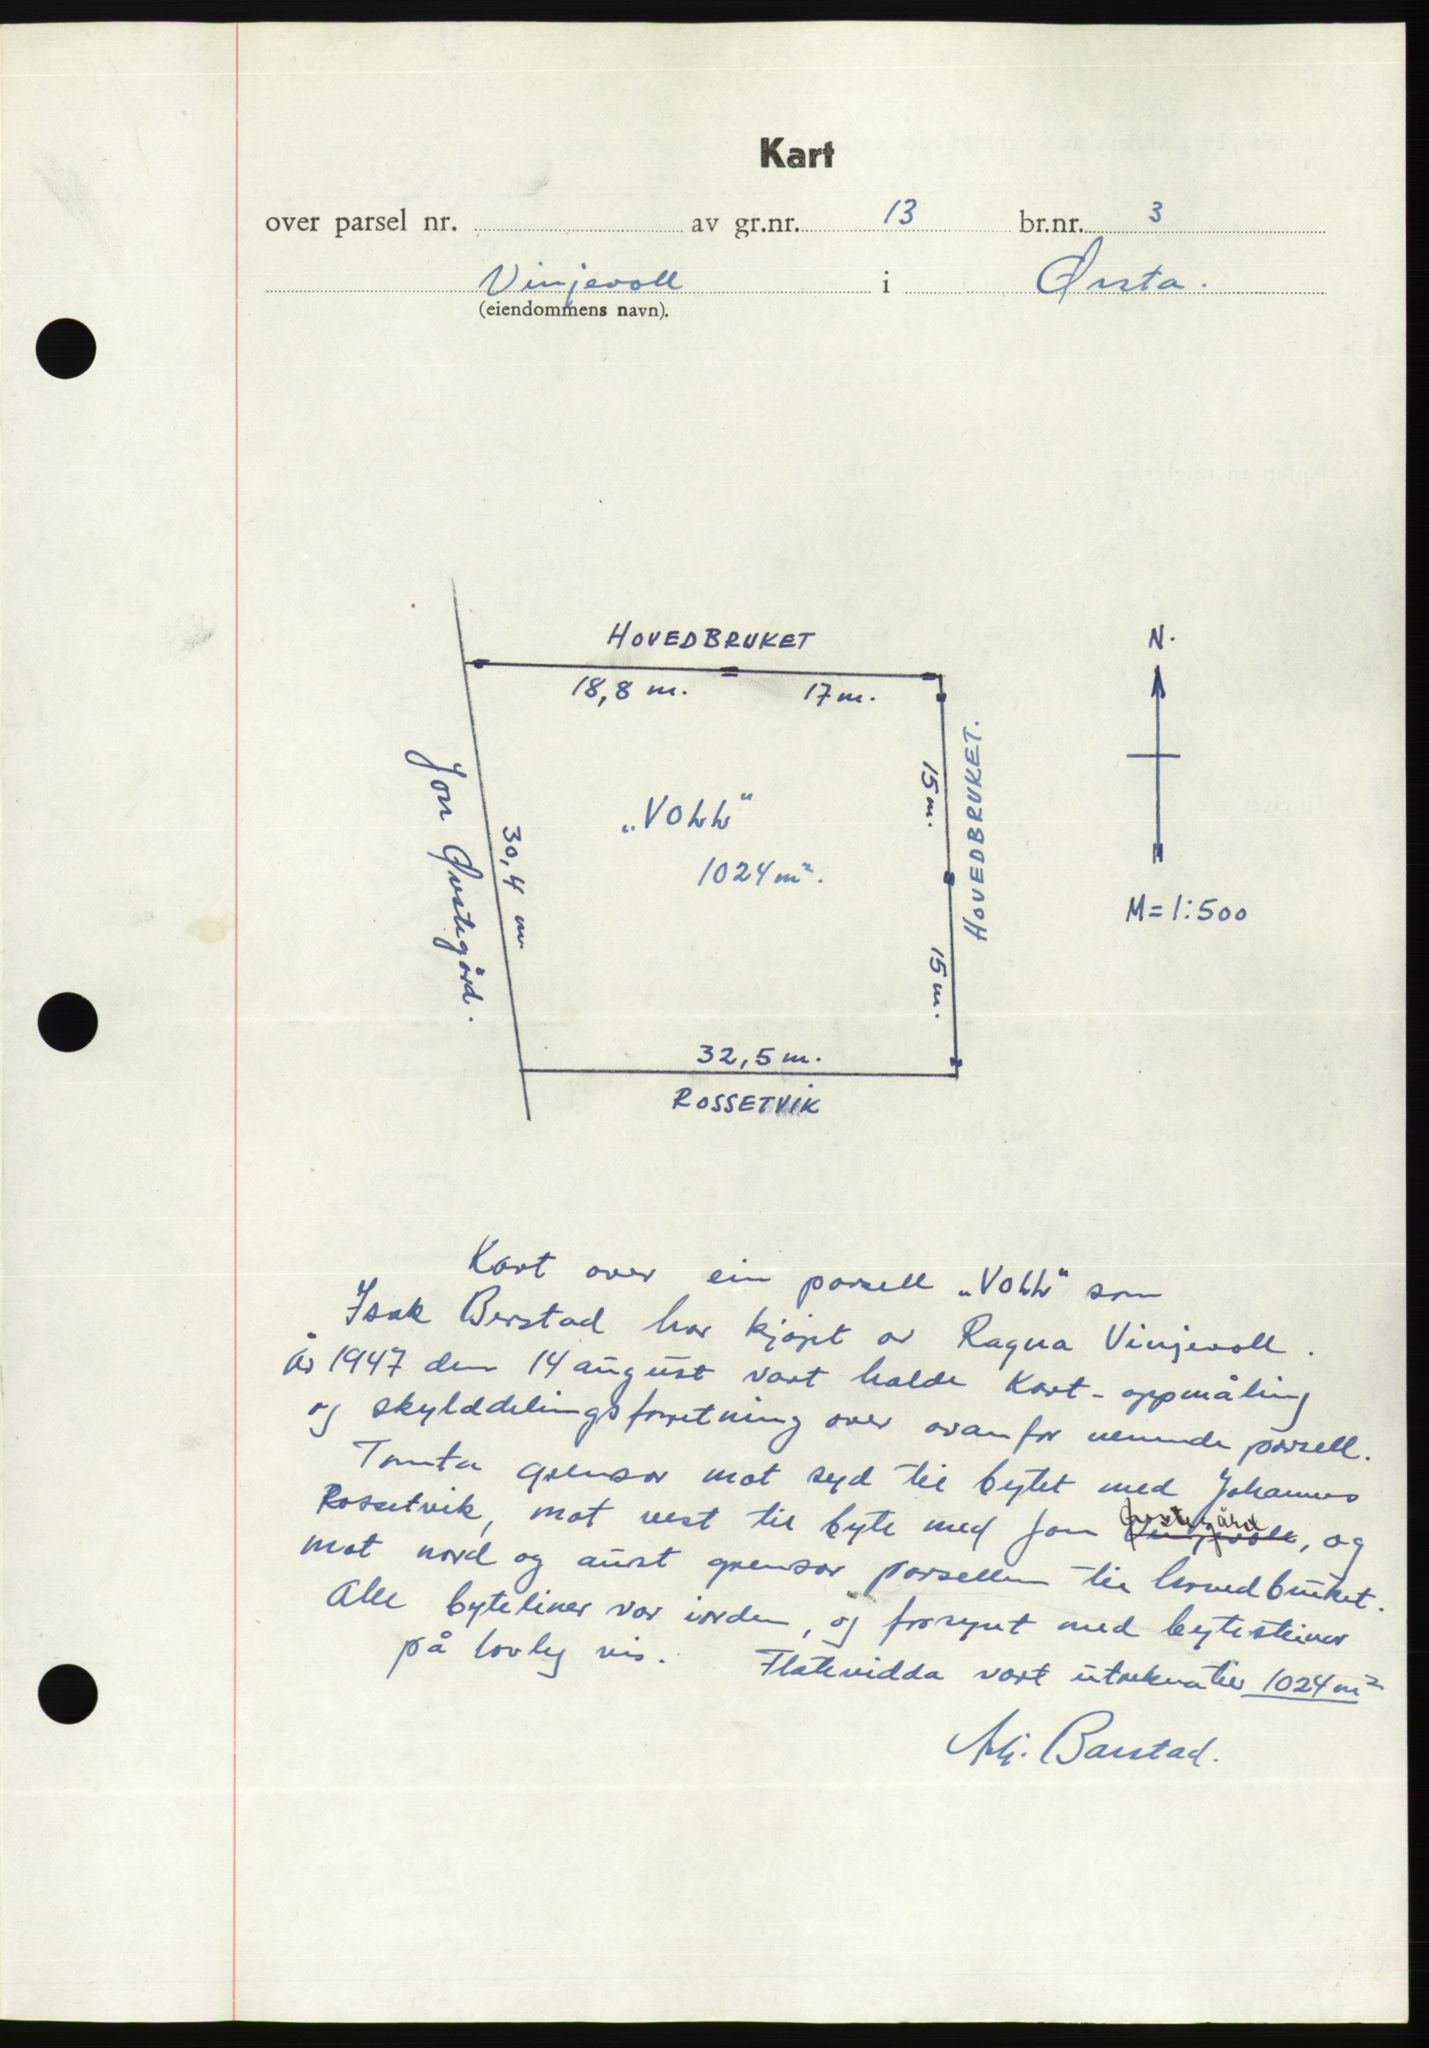 Kart
over parsel nr. av gr.nr. 13 br.nr. 3
Vinjevoll i Ørsta.
(eiendommens navn).
HOVEDBRUKET
N.
18,8 m. 17 m.
Jon Øvstegård.
30,4 m
„VOLL“
1024 m².
15 m.
HOVEDBRUKET.
15 m.
M = 1:500
32,5 m.
ROSSETVIK
Kart over ein parsell „VOLL“ som
Isak Berstad har kjøpt av Ragna Vinjevoll.
År 1947 den 14 august vart halde kart-oppmåling
og skylddelingsforretning over ovanfor nemnde parsell.
Tomta grensar mot syd til bytet med Johannes
Rossetvik, mot vest til byte med Jon Øvstegård, og
mot nord og aust grensar parsellen til hovedbruket.
Alle byteliner var iorden, og forsynt med bytesteiner
på lovleg vis. Flatevidda vart utrekna til 1024 m²
Barstad.